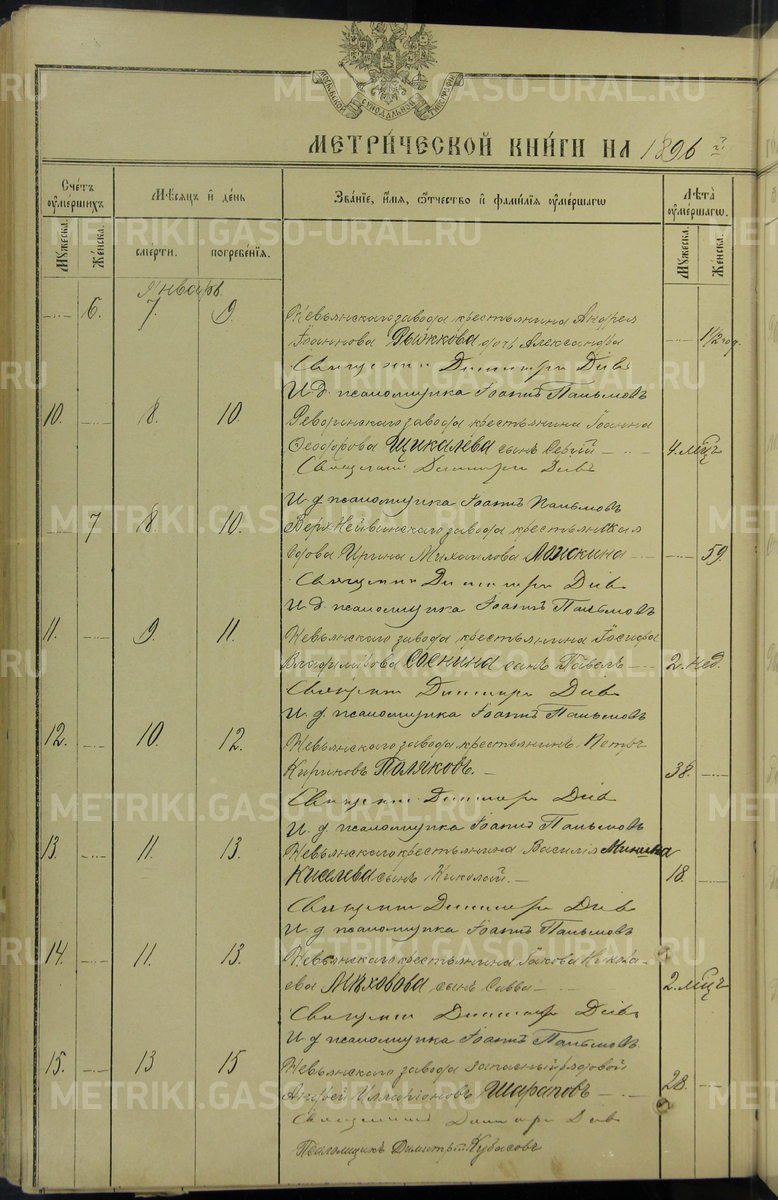 METRIKI.GASO-URAL.RU
МОСКОВСКОЙ СУНОДАЛЬНОЙ ТИПОГРАФIИ
МЕТРИ́ЧЕСКОЙ КНИ́ГИ НА 1896 г.
Счетъ ѹмершихъ
Мѣсяцъ и день
Званіе, имя, отчество и фамилія ѹмершаго
Лѣта ѹмершаго.
Мужеска.
Женска.
смерти.
погребенія.
Мужеска.
Женска.
Январь.
6. 7. 9. Невьянскаго завода крестьянина Андрея
Іоаннова Рыжкова дочь Александра 1 1/2 год.
Священникъ Димитрій Діевъ
И. д. псаломщика Іоаннъ Пальмовъ
10. 8. 10. Ревдинскаго завода крестьянина Іоанна
Ѳеодорова Щикалева сынъ Сергій 4. мѣц
Священникъ Димитрій Діевъ
И. д. псаломщика Іоаннъ Пальмовъ
7 8 10. Верхнейвинскаго завода крестьянская
вдова Ирина Михаилова Мозжкина 59.
Священникъ Димитрій Діевъ
И. д. псаломщика Іоаннъ Пальмовъ
11. 9. 11. Невьянскаго завода крестьянина Іосифа
Владимірова Соснина сынъ Павелъ 2. нед.
Священникъ Димитрій Діевъ
И. д. псаломщика Іоаннъ Пальмовъ
12. 10. 12. Невьянскаго завода крестьянинъ Петръ
Кириковъ Поляковъ. 38.
Священникъ Димитрій Діевъ
И. д. псаломщика Іоаннъ Пальмовъ
13. 11. 13. Невьянскаго крестьянина Василія Минина
Киселева сынъ Николай. 18.
Священникъ Димитрій Діевъ
И. д. псаломщика Іоаннъ Пальмовъ
14. 11. 13. Невьянскаго крестьянина Іакова Никола-
ева Мѣховова сынъ Савва 2. мѣц
Священникъ Димитрій Діевъ
И. д. псаломщика Іоаннъ Пальмовъ.
15. 13 15 Невьянскаго завода запасный рядовой
Андрей Илларіоновъ Шараповъ 28.
Священникъ Димитрій Діевъ
Псаломщикъ Димитрій Кубасовъ